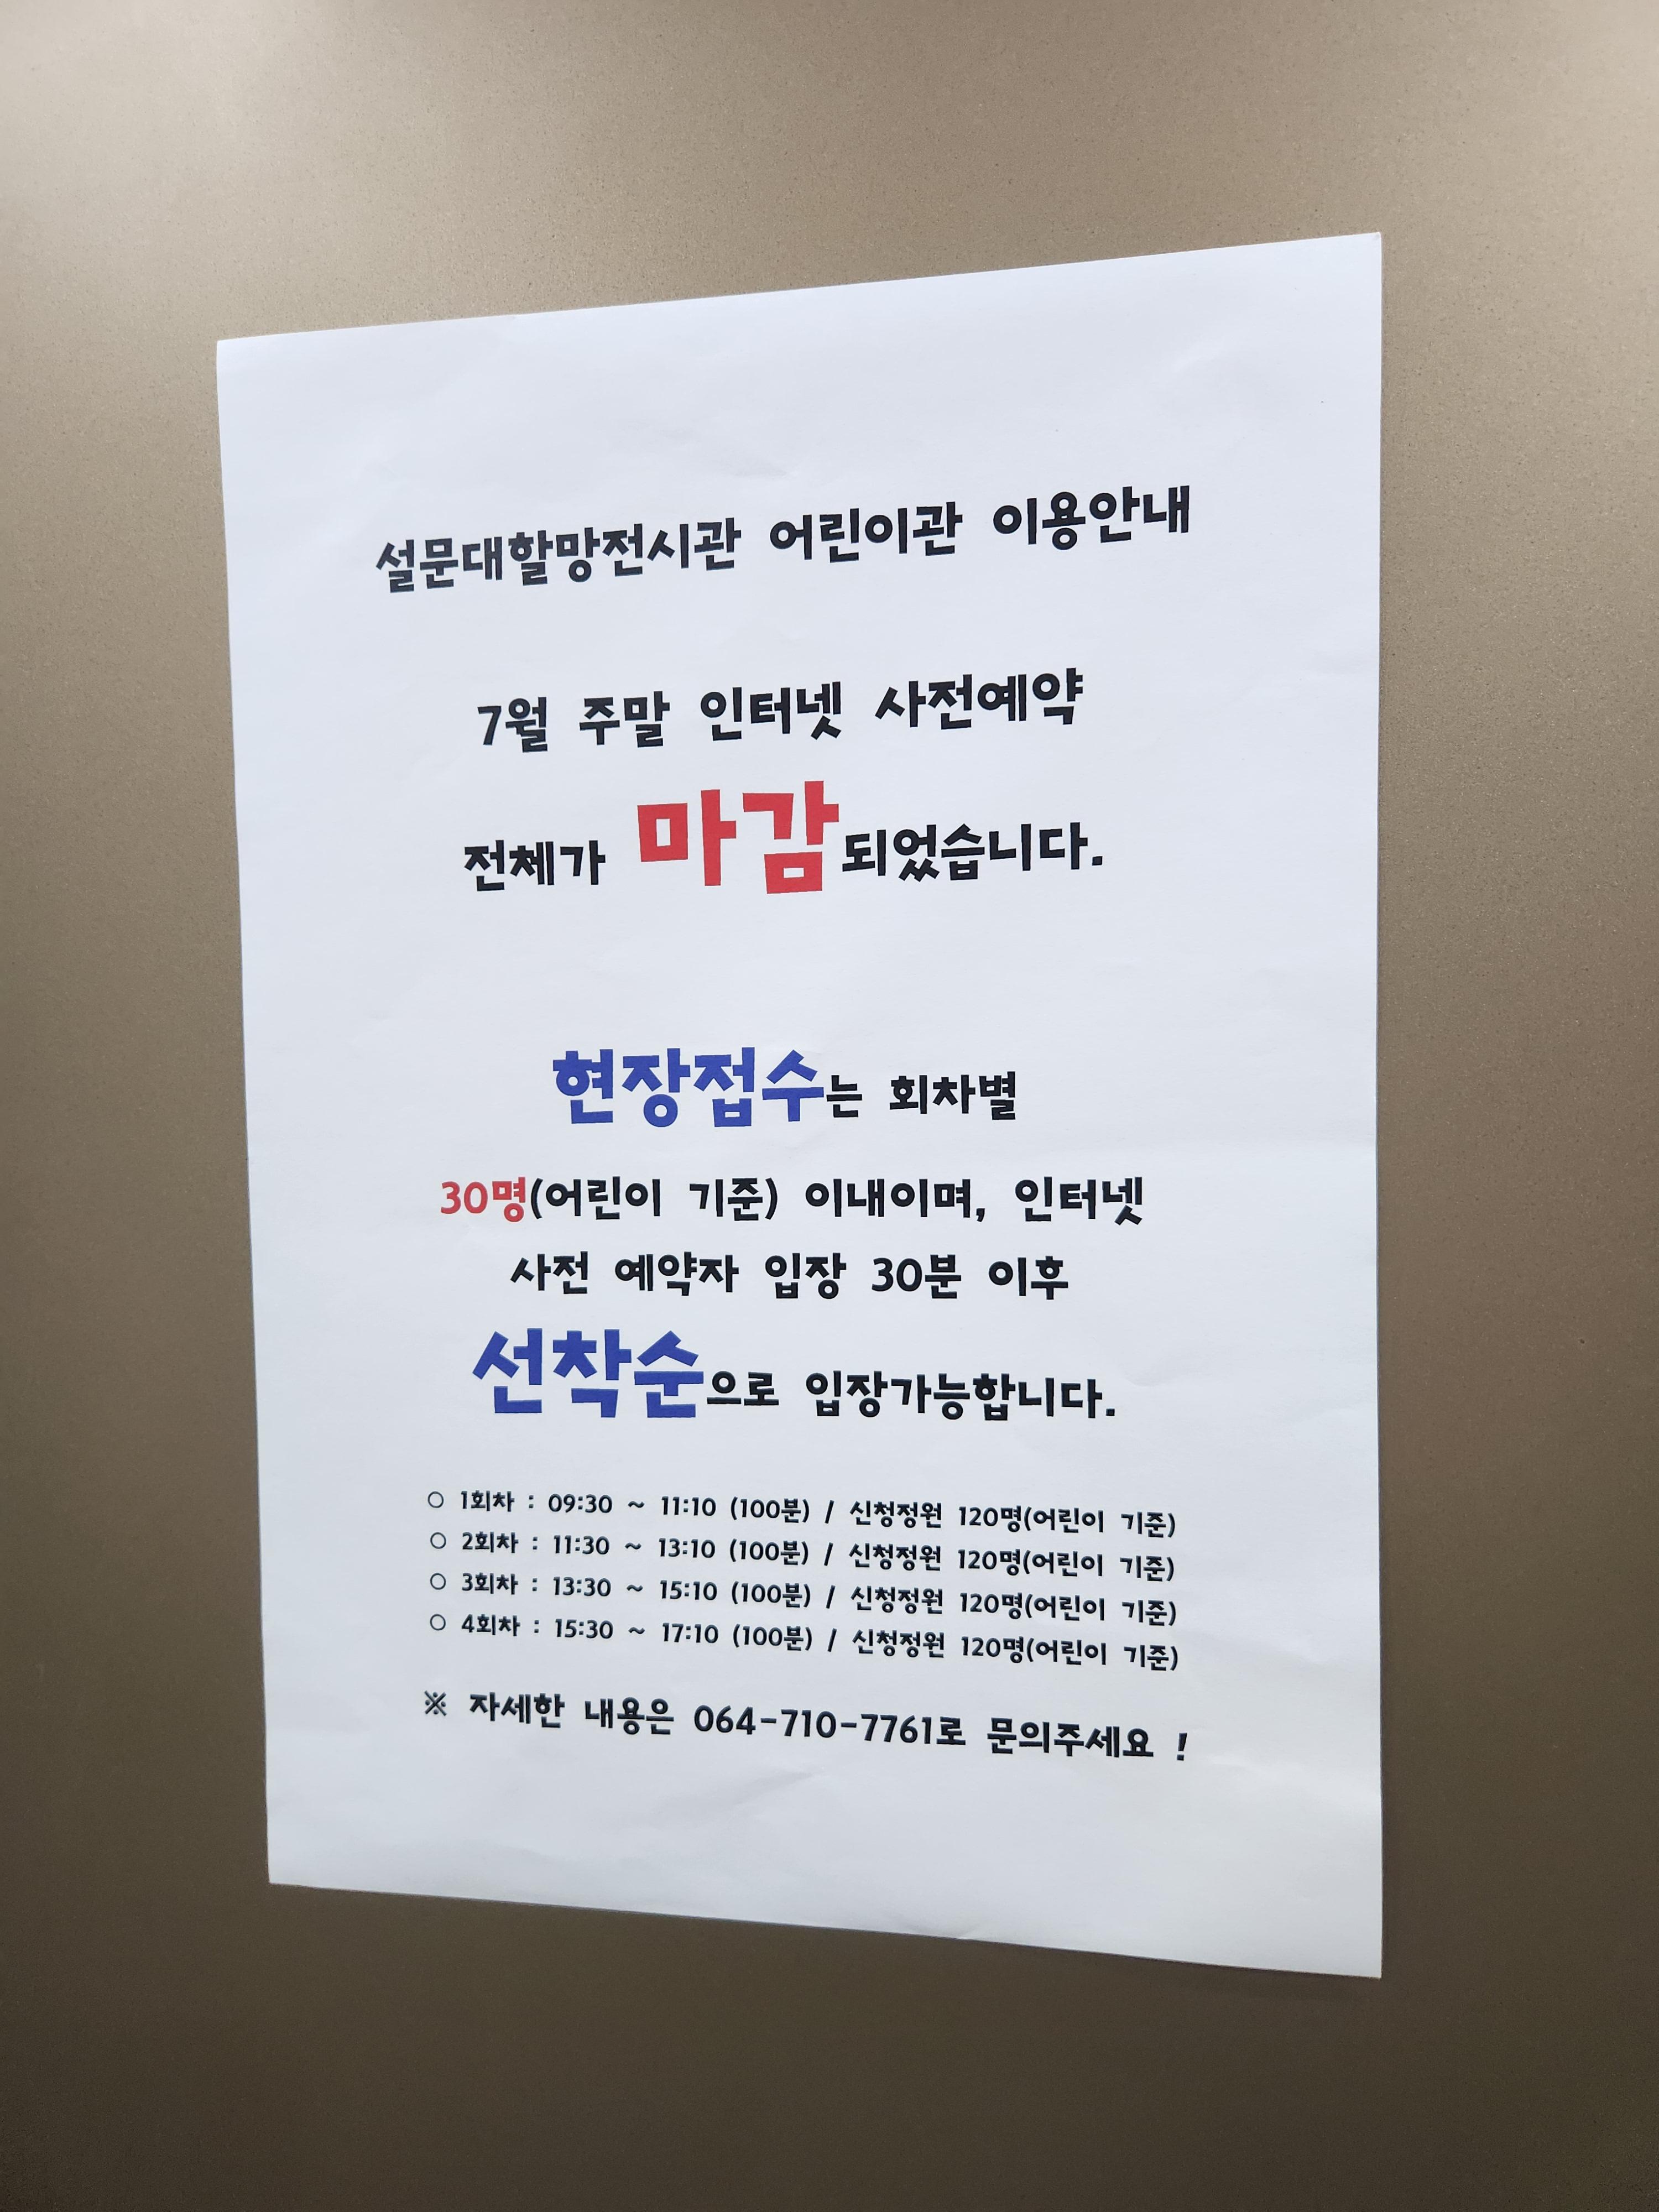 설문대할망전시관 어린이관 이용안내
7월 주말 인터넷 사전예약
전체가 마감되었습니다.
현장접수는 회차별
30명(어린이 기준) 이내이며, 인터넷
사전 예약자 입장 30분 이후
선착순으로 입장가능합니다.
○ 1회차 : 09:30 ~ 11:10 (100분) / 신청정원 120명(어린이 기준)
○ 2회차 : 11:30 ~ 13:10 (100분) / 신청정원 120명(어린이 기준)
○ 3회차 : 13:30 ~ 15:10 (100분) / 신청정원 120명(어린이 기준)
○ 4회차 : 15:30 ~ 17:10 (100분) / 신청정원 120명(어린이 기준)
※ 자세한 내용은 064-710-7761로 문의주세요 !